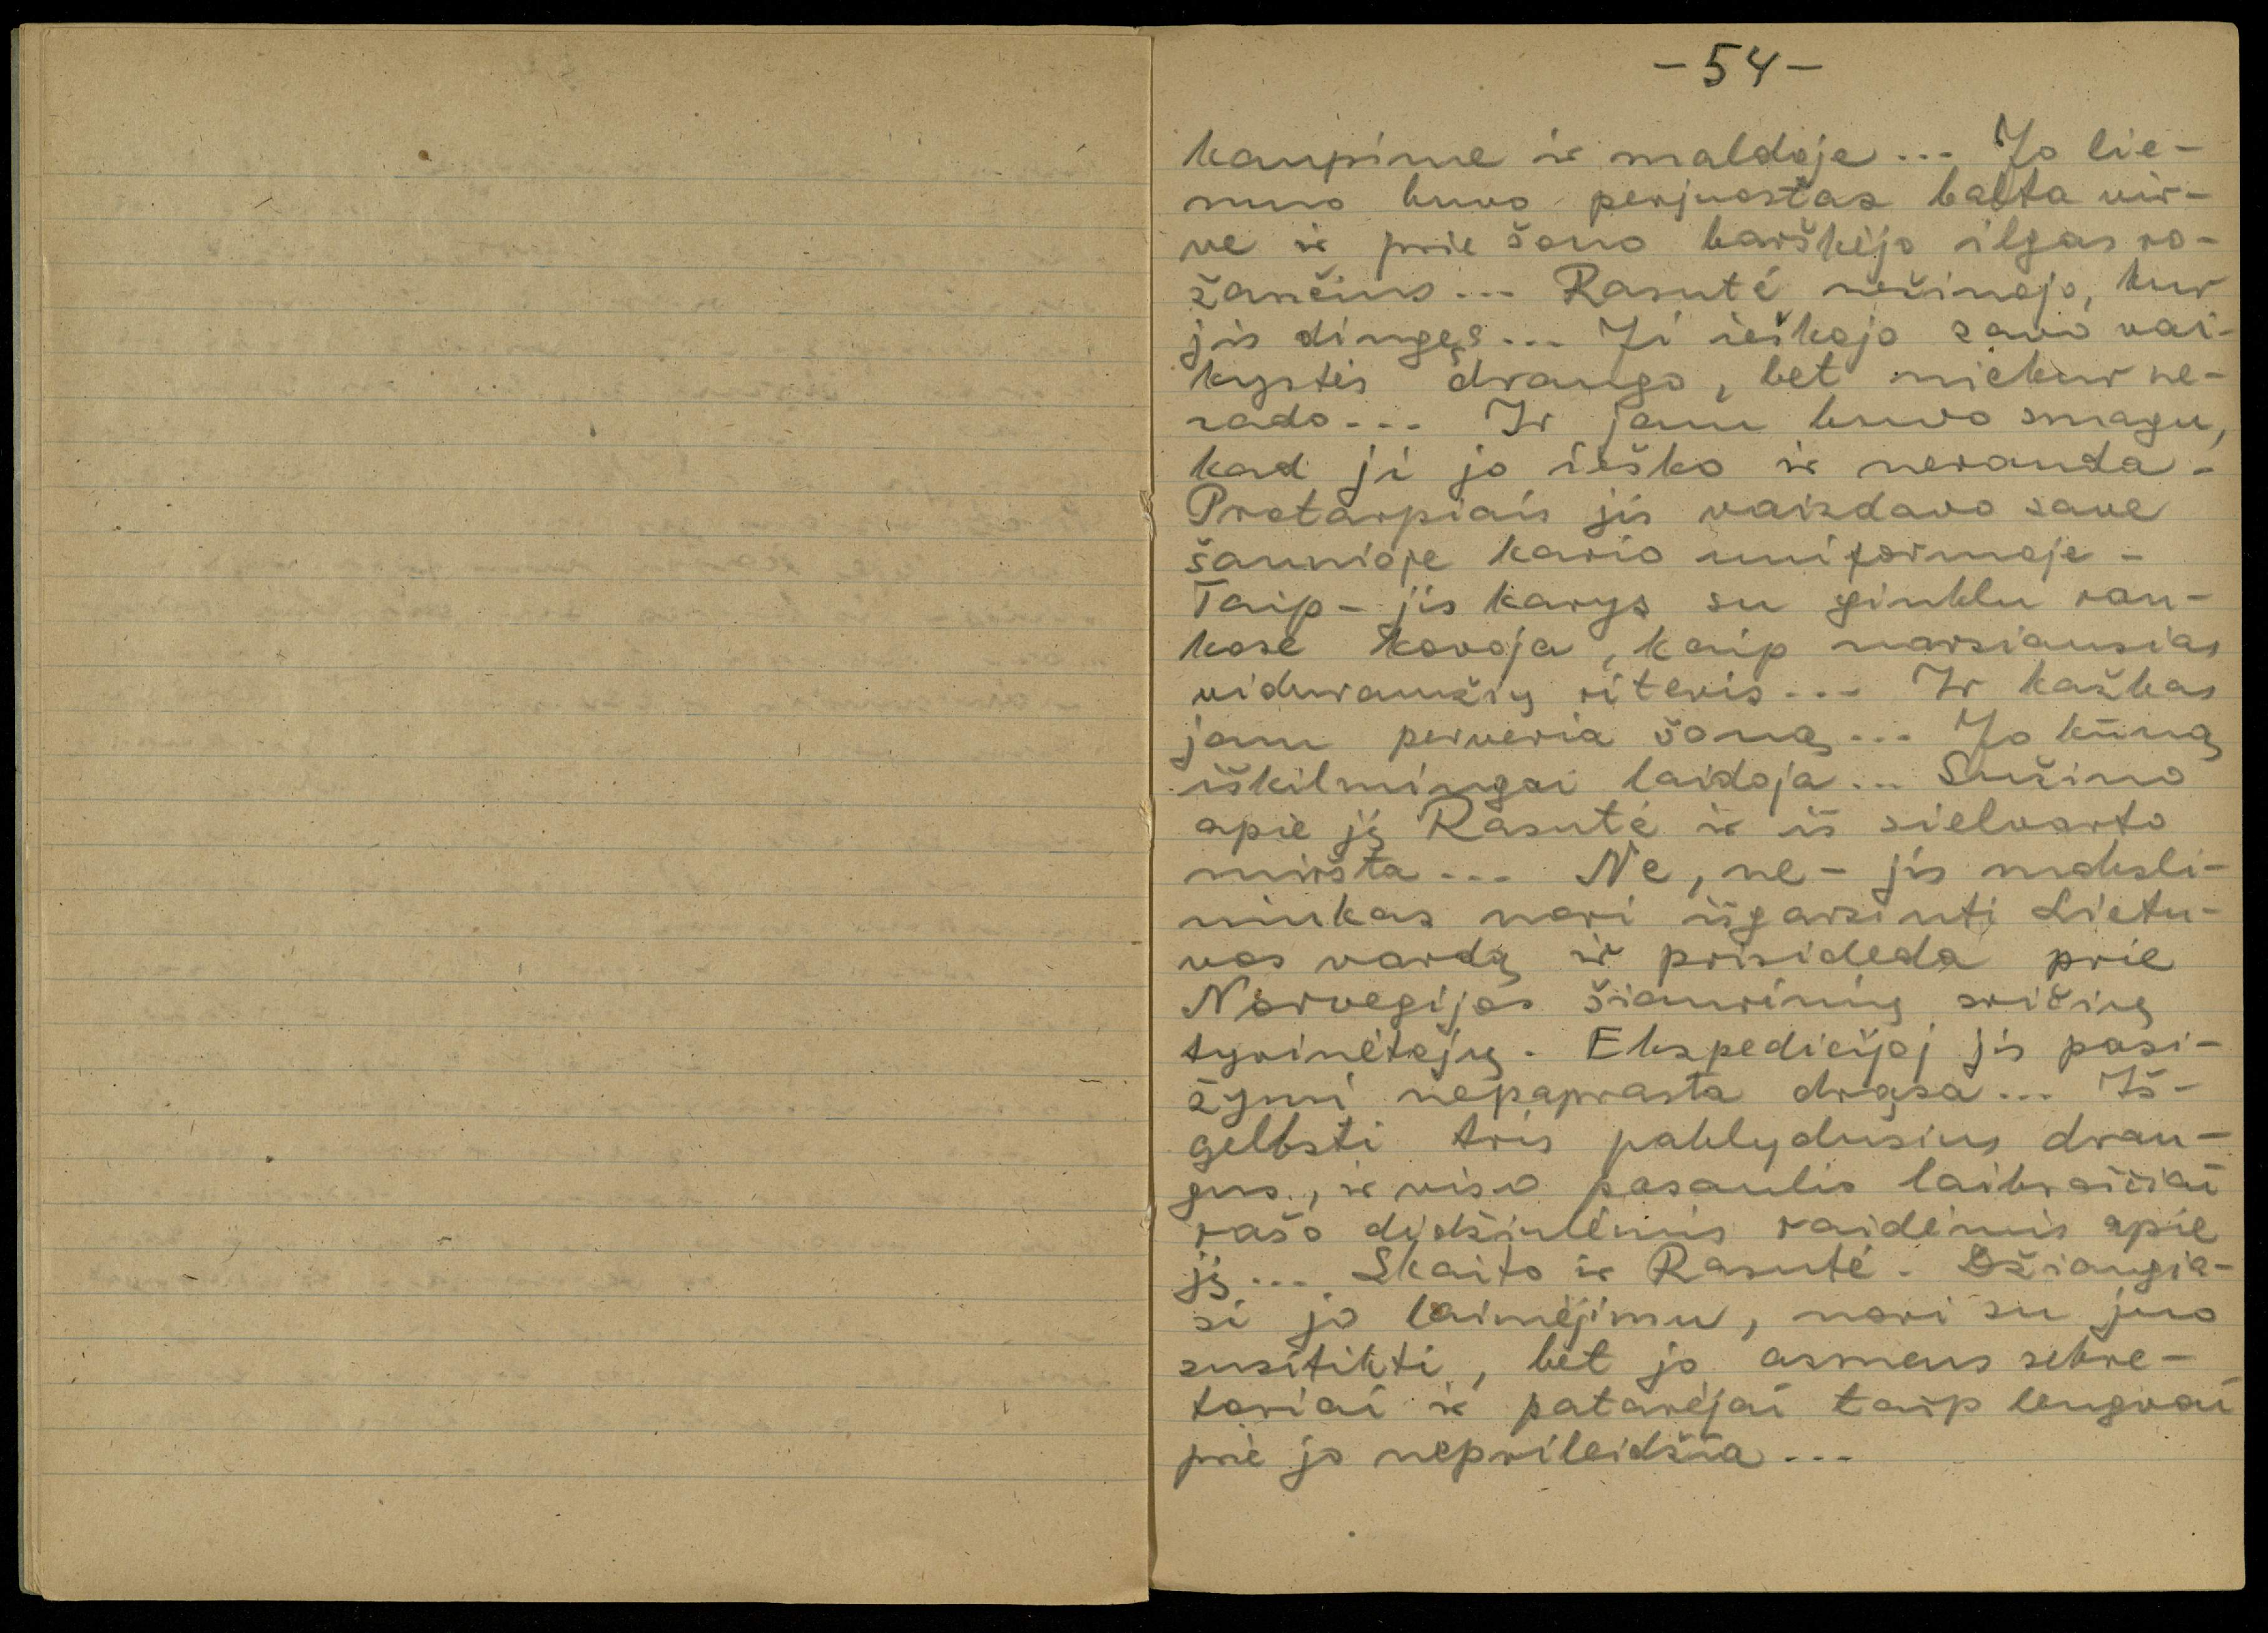 -54-
kaupime ir maldoje... Jo lie-
muo buvo perjuostas balta vir-
ve ir prie šono barškėjo ilgas ro-
žančius... Rasutė nežinojo, kur
jis dingęs... Ji ieškojo savo vai-
kystės draugo, bet niekur ne-
rado... Ir jam buvo smagu,
kad ji jo ieško ir neranda.
Protarpiais jis vaizdavo save
šaunioje kario uniformoje -
Taip - jis karys su ginklu ran-
kose kovoja, kaip narsiausias
viduramžių riteris... Ir kažkas
jam perveria šoną... Jo kūną
iškilmingai laidoja... Sužino
apie jį Rasutė ir iš sielvarto
miršta... Ne, ne - jis moksli-
ninkas nori išgarsinti Lietu-
vos vardą ir prisideda prie
Norvegijos šiaurinių sričių
tyrinėtojų. Ekspedicijoj jis pasi-
žymi nepaprasta drąsa... Iš-
gelbsti tris paklydusius drau-
gus, ir viso pasaulio laikraščiai
rašo didžiulėmis raidėmis apie
jį... Skaito ir Rasutė. Džiaugia-
si jo laimėjimu, nori su juo
susitikti, bet jo asmens sekre-
toriai ir patarėjai taip lengvai
prie jo neprileidžia...